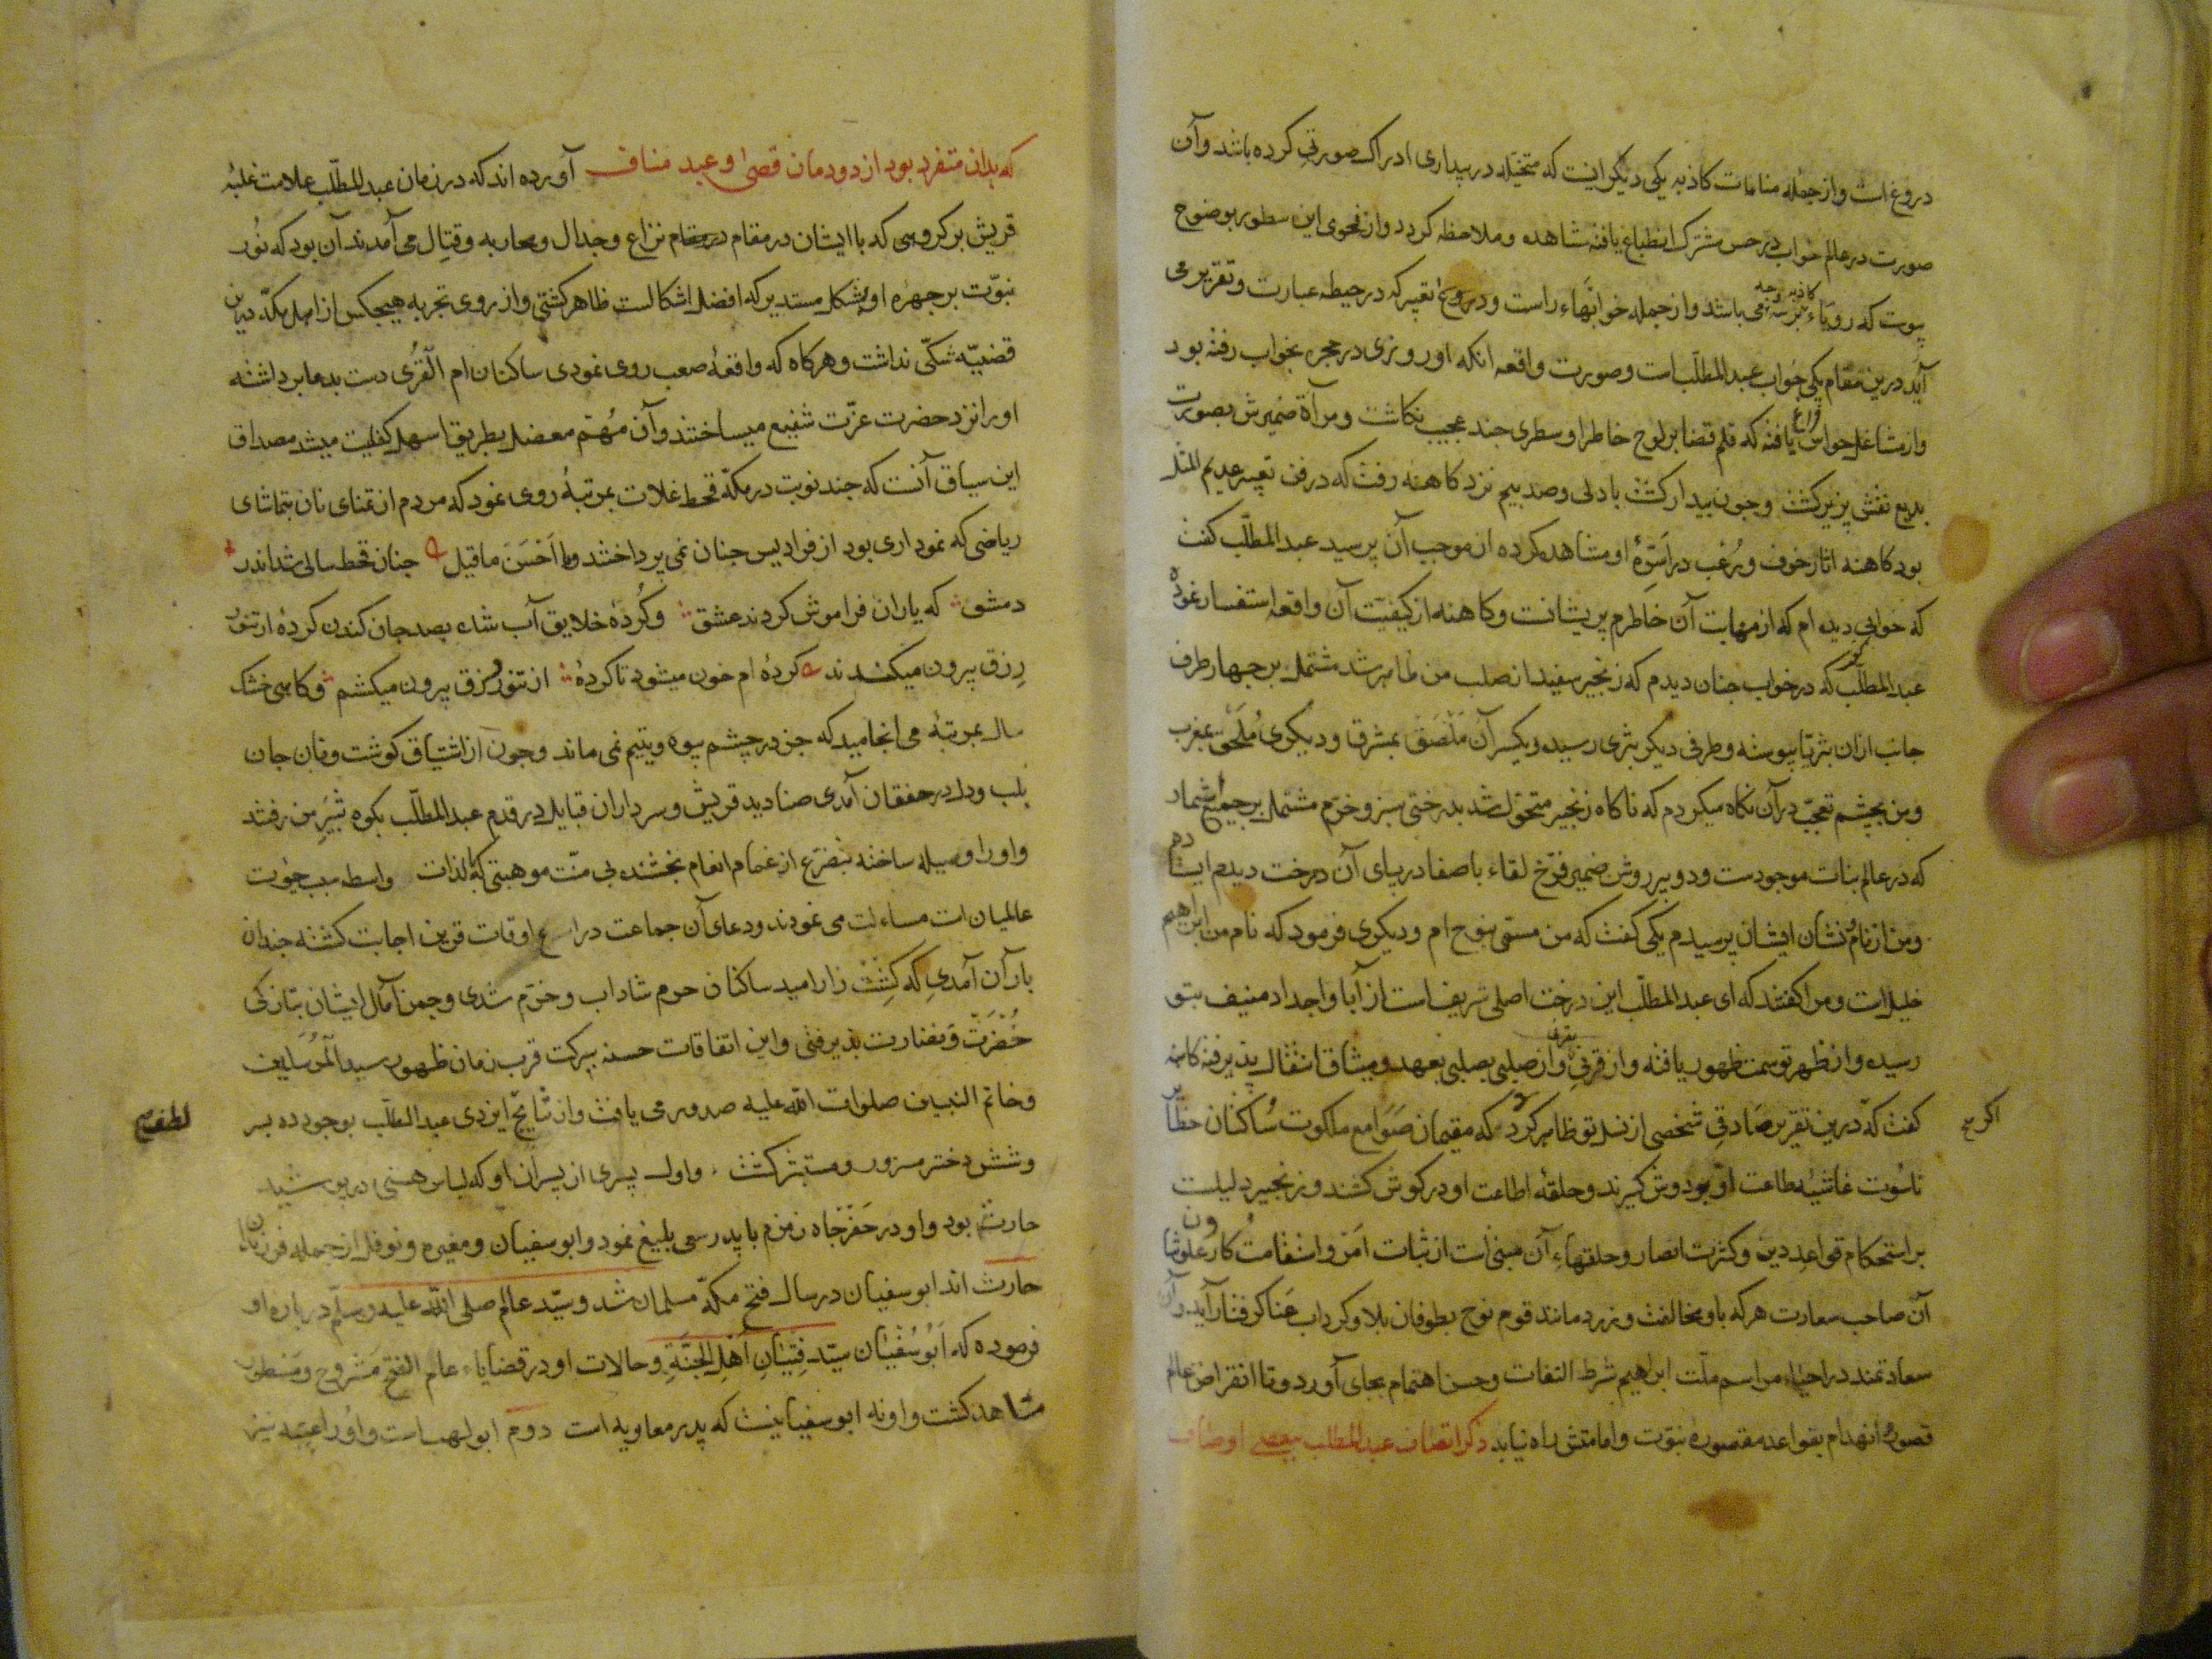 دروغ است و از جمله منامات کاذبه یکی دیگر اینست که متخیله در بیداری ادراک صورتی کرده باشد و آن
صورت در عالم خواب در حس مشترک انطباع یافته مشاهده و ملاحظه کردد و از فحوی این سطور بوضوح
پیوست که رویاء می باشد و از جمله خوابهاء راست و دروغ تعبیر که در حیطه عبارت و تقریر می
آید درین مقام یکی خواب عبد المطلب است و صورت واقعه آنکه او روزی در حجره بخواب رفته بود
و از مشاغل حواس فراغ یافته که قلم قضا بر لوح خاطر او سطری چند عجیب نکاشت و مرآة ضمیرش بصورت
بدیع نقش پزیر کشت و چون بیدار کشت با دلی و صد بیم نزد کاهنه رفت که در فن تعبیر عدیم المثل
بود کاهنه اثار خوف و رعب در اسرّهٔ او مشاهده کرده از موجب آن پرسید عبد المطلب کفت
که خوابی دیده ام که از مهابت آن خاطرم پریشانست و کاهنه از کیفیت آن واقعه استفسار نموده
عبد المطلب کفت که در خواب چنان دیدم که زنجیر سفید از صلب من ظاهر شد مشتمل بر چهار طرف
جانب ازان بثریا پیوسته و طرفی دیکر بثری رسیده و یکسر آن ملصق بمشرق و دیکری ملحق بمغرب
و من بچشم تعجب در آن نکاه میکردم که ناکاه زنجیر متحول شد بدرختی سبز و خرم مشتمل بر جمیع ثمار
که در عالم نبات موجودست و دو پیر روشن ضمیر فرخ لقاء با صفا در پای آن درخت دیدم ایستاده
و من از نام و نشان ایشان پرسیدم یکی کفت که من مسمی بنوح ام و دیکری فرمود که نام من ابراهیم
خلیل است و مرا کفتند که ای عبد المطلب این درخت اصلی شریف است از آبا و اجداد منیف بتو
رسیده و از ظهر تو سمت ظهور یافته و از قرنی بقرنی و از صلبی بصلبی بعهد و میثاق انتقال پذیرفته کاهنه
کفت که درین تقریر صادقی شخصی از نسل تو ظاهر کردد که مقیمان صوامع ملکوت و ساکنان خطایر
ناسوت غاشیه مطاعت او بر دوش کیرند و حلقهٔ اطاعت او در کوش کشند و زنجیر دلیلست
بر استحکام قواعد دین و کثرت انصار و حلقهاء آن مبنی است از ثبات امر و استقامت کار و علو شان
آن صاحب سعادت هر که باو مخالفت ورزد مانند قوم نوح بطوفان بلا و کرداب عنا کرفتار آید و آن
سعادتمند در احیاء مراسم ملت ابراهیم شرط التفات و حسن اهتمام بجای آورد و تا انقراض عالم
قصور و انهدام بقواعد مقصورهٔ نبوت و امامتش راه نیابد ذکر اتصاف عبد المطلب ببعضی اوصاف
که بدان متفرد بود از دودمان قصی و عبد مناف آورده اند که در زمان عبد المطلب علامت غلبهٔ
قریش بر کروهی که با ایشان در مقام نزاع و جدال و محاربه و قتال می آمدند آن بود که نور
نبوّت بر چهره او بشکل مستدیر که افضل اشکالست ظاهر کشتی و از روی تجربه هیچکس از اهل مکّه درین
قضیّه شکّی نداشت و هر کاه که واقعهٔ صعب روی نمودی ساکنان ام القری دست بدعا برداشته
او را نزد حضرت عزّت شفیع میساختند و آن مهمّ معضل بطریق اسهل کفایت میشد مصداق
این سیاق آنست که چند نوبت در مکّه قحط غلات بمرتبهٔ روی نمود که مردم از تمنای نان بتماشای
ریاضی که نموداری بود از فرادیس جنان نمی پرداختند و ما احسن ما قیل چنان قحط سالی شد اندر
دمشق که یاران فراموش کردند عشق و کُردهٔ خلایق آب شده بصد جان کندن کردهٔ از تنور
رزق بیرون میکشیدند کردهٔ ام خون میشود تا کردهٔ از تنور رزق بیرون میکشم و کاهی خشک
سال بمرتبهٔ می انجامید که جز در چشم بیوه و یتیم نمی ماند و چون از اشتیاق کوشت و نان جان
بلب و دل در خفقان آمدی صنادید قریش و سرداران قبایل در قدم عبد المطلب بکوه ثبیر من رفتند
و او را وسیله ساخته بتضرع از غمام انعام بخشنده بی منّت موهبتی که بالذات واسطه سبب حیوت
عالمیان است مساءلت می نمودند و دعای آن جماعت در اسرع اوقات قرین اجابت کشته چندان
باران آمدی که کشت زار امید ساکنان حرم شاداب و خرّم شدی و چمن آمال ایشان بتازکی
خُضرت و نضارت پذیرفتی و این اتفاقات حسنه ببرکت قرب زمان ظهور سید المرسلین
و خاتم النبیین صلوات الله علیه صدور می یافت و از نتایج ایزدی عبد المطلب بوجود ده پسر
و شش دختر مسرور و مستبشر کشت و اول پسری از پسران او که لباس هستی در پوشید
حارث بود و او در حفر چاه زمزم با پدر سعی بلیغ نمود و ابو سفیان و مغیره و نوفل از جمله فرزندان
حارث اند ابو سفیان در سال فتح مکّه مسلمان شد و سیّد عالم صلی الله علیه وسلّم در باره او
فرموده که اَبُو سُفیَان سَیِّد فِتیَانِ اَهلِ الجَنَّةِ و حالات او در قضایاء عام الفتح مشروح و مسطور
مشاهد کشت و او نه ابو سفیانیست که پدر معاویه است دوم ابو لهب است و او را عتبه نیز